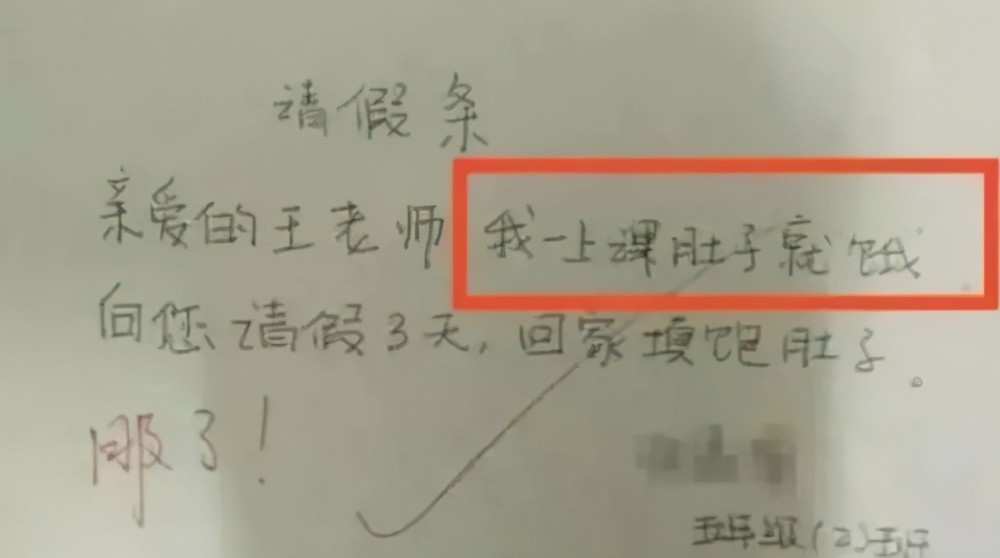 请假条
亲爱的王老师 我一上课肚子就饿
向您请假3天，回家填饱肚子。
服了！
五年级(2)班